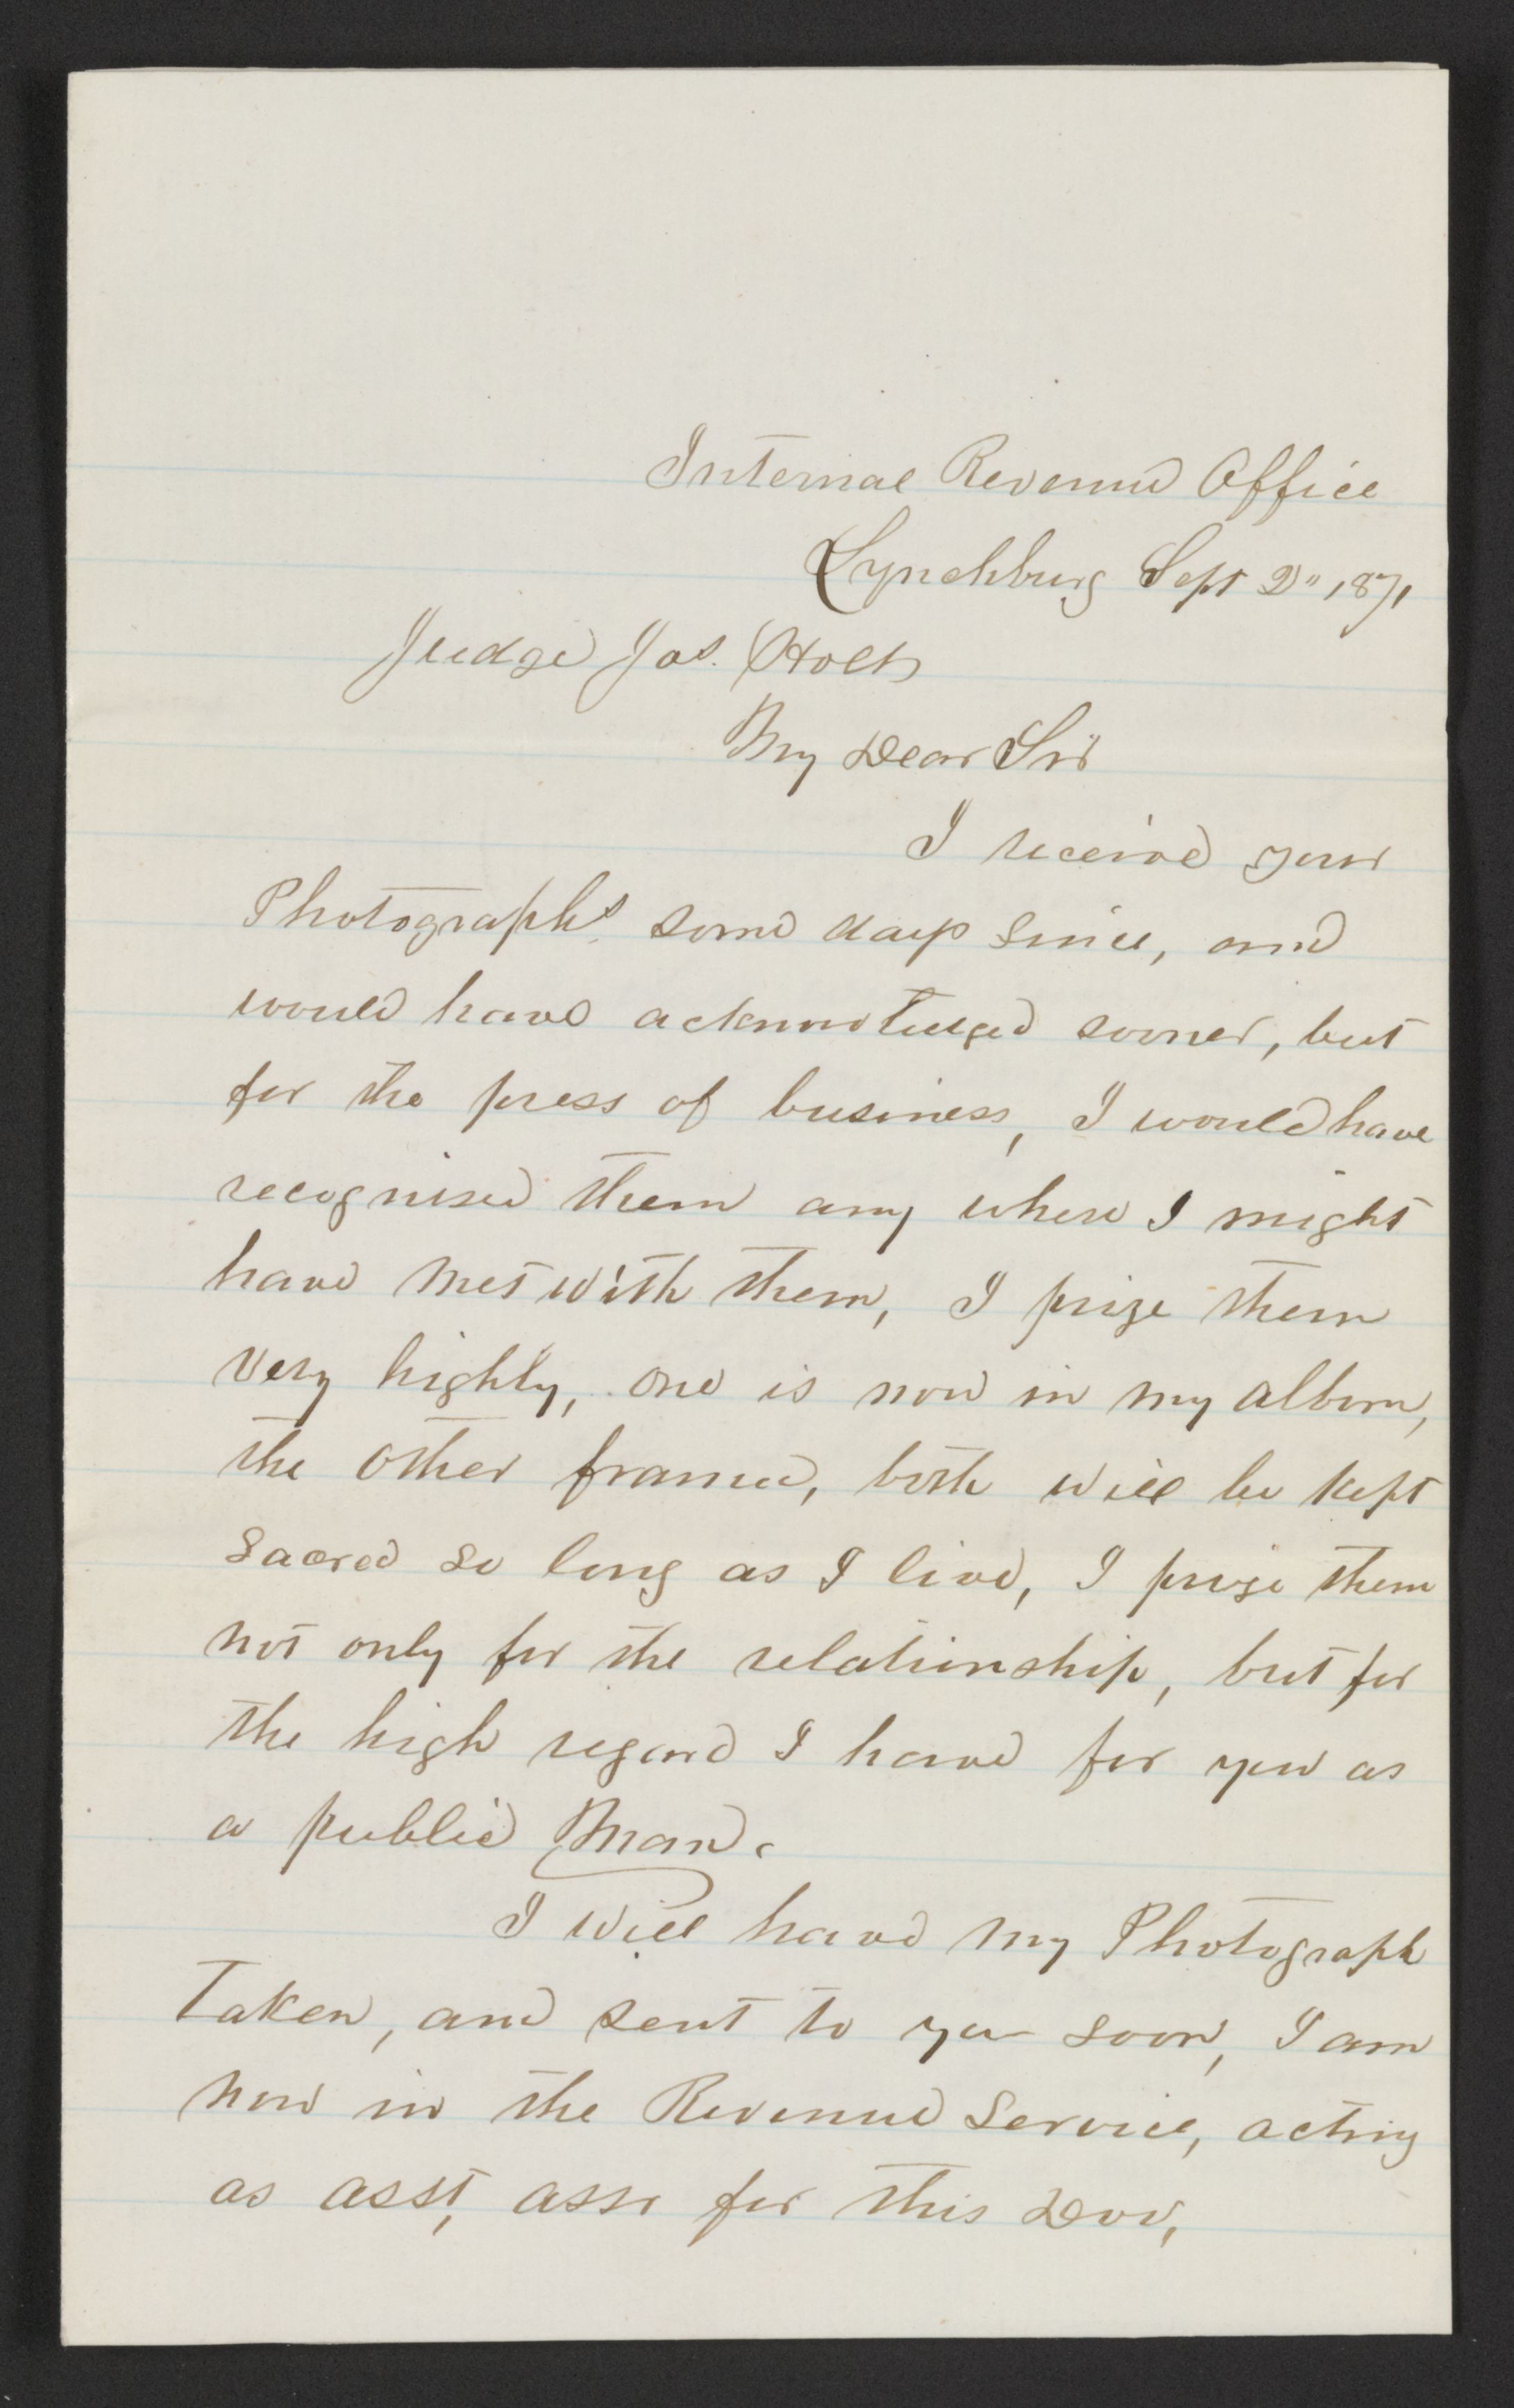 Internal Revenue Office
Lynchburg Sept 2" 1871
Judge Jos. Holt
My Dear Sir
I received your
Photographs some days since, and
would have acknowledged sooner, but
for the press of business, I would have
recognised them any where I might
have met with them, I prize them
very highly, one is now in my album,
the other framed, both will be kept
sacred so long as I live, I prize them
not only for the relationship, but for
the high regard I have for you as
a public Man.
I will have my Photograph
Taken, and sent to you soon, I am
now in the Revenue Service, acting
as asst, assr for this Div,